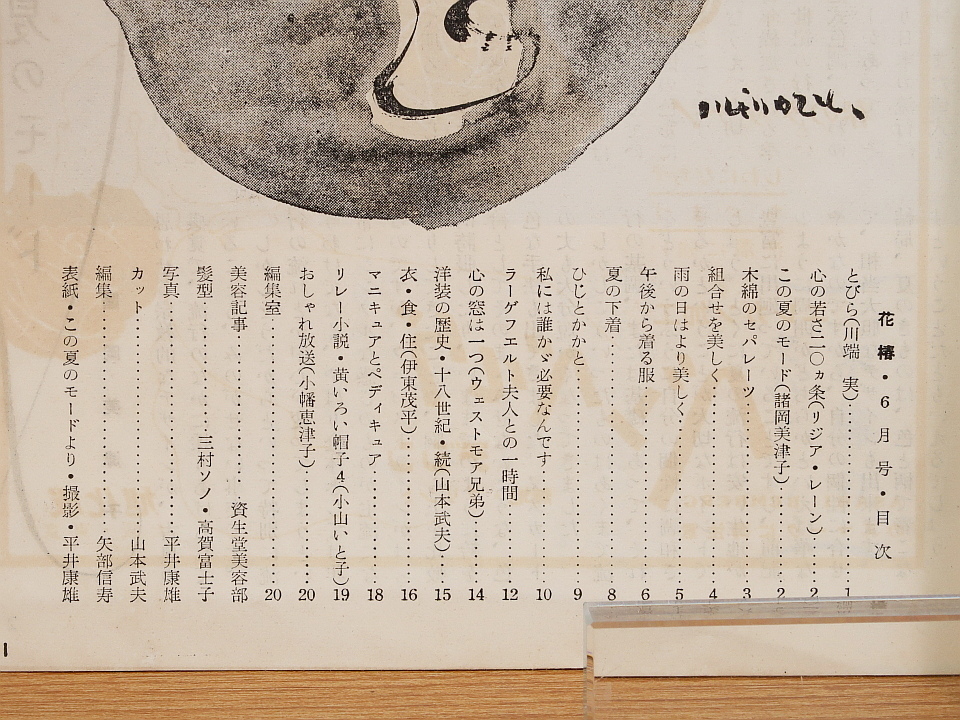 花椿・6月号・目次
とびら(川端 実)…………1
心の若さ二〇ヵ条(リジア・レーン)…………2
この夏のモード(諸岡美津子)…………2
木綿のセパレーツ…………3
組合せを美しく…………4
雨の日はより美しく…………5
午後から着る服…………6
夏の下着…………8
ひじとかかと…………9
私には誰かゞ必要なんです…………10
ラーゲフエルト夫人との一時間…………12
心の窓は一つ(ウェストモア兄弟)…………14
洋装の歴史・十八世紀・続(山本武夫)…………15
衣・食・住(伊東茂平)…………16
マニキュアとペディキュア…………18
リレー小説・黄いろい帽子4(小山いと子)…………19
おしゃれ放送(小幡恵津子)…………20
編集室…………20
美容記事…………資生堂美容部
髪型…………三村ソノ・高賀富士子
写真…………平井康雄
カット…………山本武夫
編集…………矢部信寿
表紙・この夏のモードより・撮影・平井康雄
1